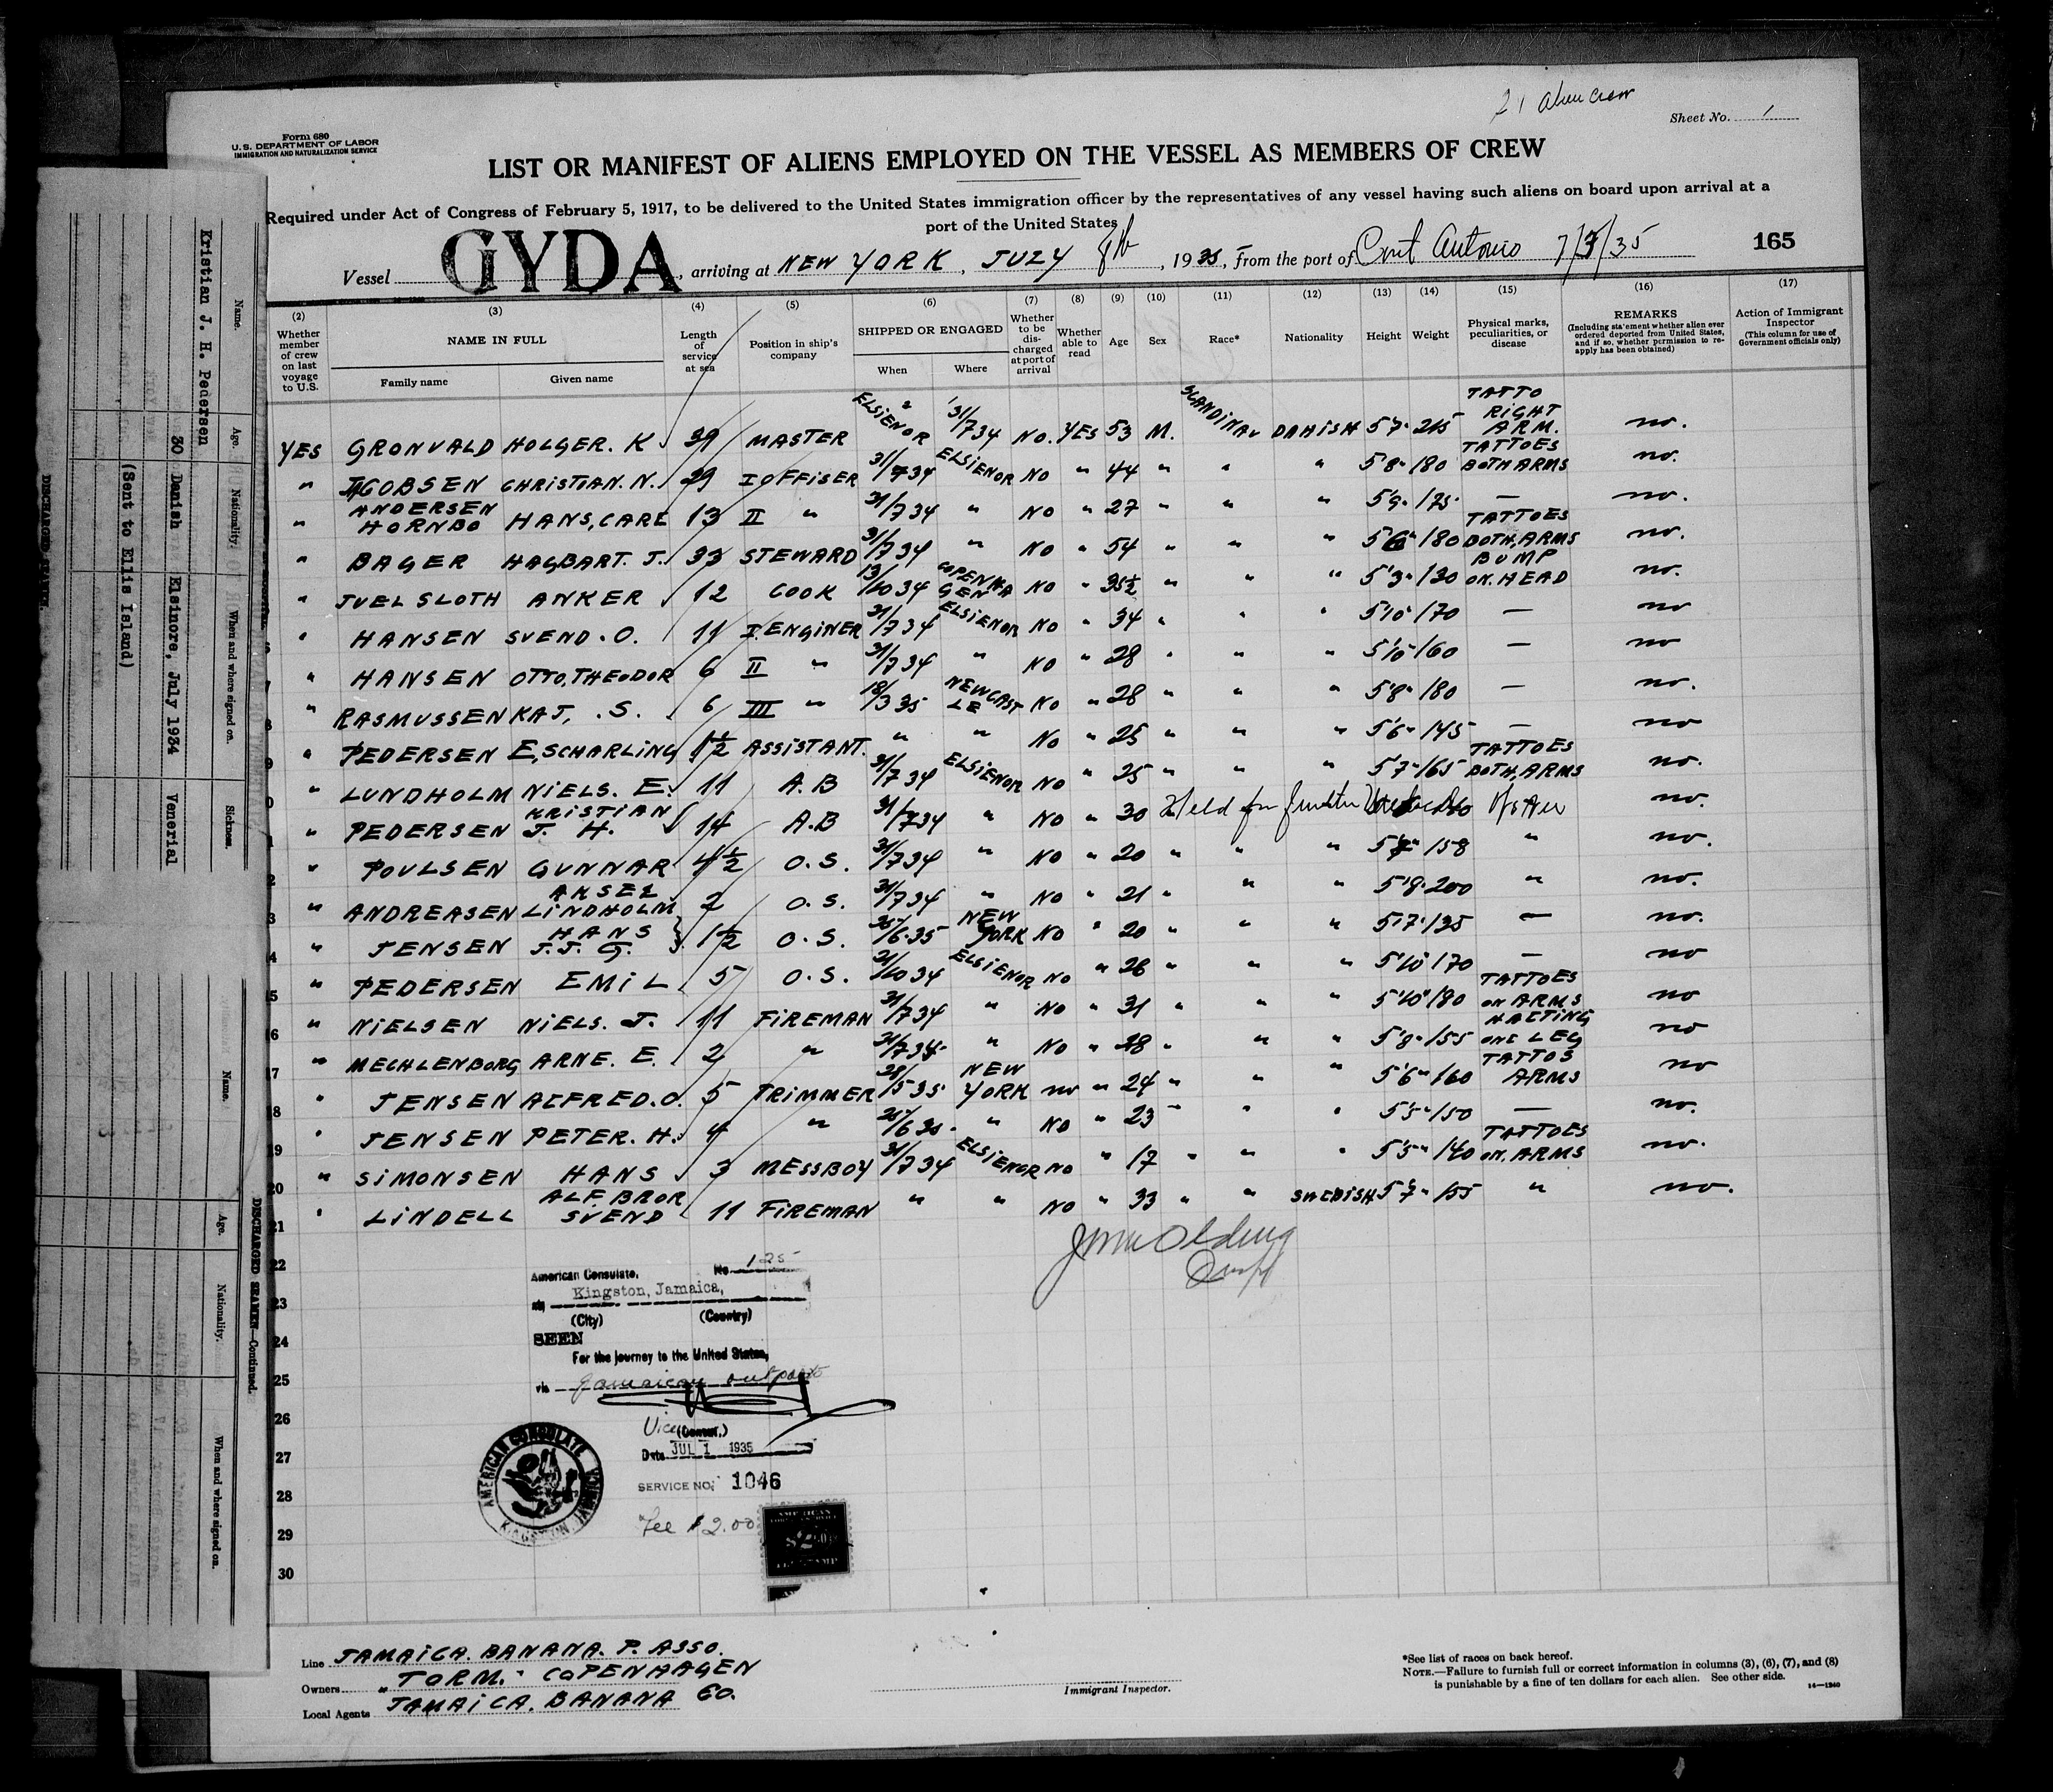 21 alien crew
Sheet No. 1
Form 680
U. S. DEPARTMENT OF LABOR
IMMIGRATION AND NATURALIZATION SERVICE
LIST OR MANIFEST OF ALIENS EMPLOYED ON THE VESSEL AS MEMBERS OF CREW
Required under Act of Congress of February 5, 1917, to be delivered to the United States immigration officer by the representatives of any vessel having such aliens on board upon arrival at a
port of the United States
Vessel GYDA, arriving at NEW YORK, JULY 8th, 1935, from the port of Port Antonio 7/3/35
165
(2) (3) (4) (5) (6) (7) (8) (9) (10) (11) (12) (13) (14) (15) (16) (17)
Whether member of crew on last voyage to U.S.
NAME IN FULL
Family name Given name
Length of service at sea
Position in ship's company
SHIPPED OR ENGAGED
When Where
Whether to be discharged at port of arrival
Whether able to read
Age
Sex
Race*
Nationality
Height
Weight
Physical marks, peculiarities, or disease
REMARKS
(Including statement whether alien ever ordered deported from United States, and if so, whether permission to reapply has been obtained)
Action of Immigrant Inspector
(This column for use of Government officials only)
YES GRONVALD HOLGER. K 39 MASTER ELSIENOR 31/7 34 NO. YES 53 M. SCANDINAV DANISH 5 7" 215 TATTO RIGHT ARM. no.
" JACOBSEN CHRISTIAN. N. 29 I OFFISER 31/7 34 ELSIENOR NO " 44 " " " 5 8" 180 TATTOES BOTH ARMS no.
" ANDERSEN HORNBO HANS, CARL 13 II " 31/7 34 " NO " 27 " " " 5'9" 175 — no.
" BAGER HAGBART. J. 33 STEWARD 31/7 34 " NO " 54 " " " 5 6" 180 TATTOES BOTH, ARMS no.
" JUEL SLOTH ANKER 12 COOK 13/10 34 COPENHAGEN NO " 35½ " " " 5'3" 130 BUMP ON. HEAD no.
" HANSEN SVEND. O. 11 I. ENGINER 31/7 34 ELSIENOR NO " 34 " " " 5'10" 170 — no
" HANSEN OTTO, THEODOR 6 II " 31/7 34 " NO " 28 " " " 5'10" 160 — no
" RASMUSSEN KAJ, . S. 6 III " 18/3 35 NEWCASTLE NO " 28 " " " 5'8" 180 — no.
" PEDERSEN E, SCHARLING 1½ ASSISTANT. " " NO " 25 " " " 5'6" 145 — no
" LUNDHOLM NIELS. E. 11 A. B 31/7 34 ELSIENOR NO " 25 " " " 5'7" 165 TATTOES BOTH, ARMS no.
" PEDERSEN KRISTIAN J. H. 14 A.B 31/7 34 " NO " 30 Held for further no.
" POULSEN GUNNAR 4½ O. S. 31/7 34 " NO " 20 " " " 158 " no.
" ANDREASEN AKSEL LINDHOLM 2 O. S. 31/7 34 " NO " 21 " " " 5'8" 200 " no.
" JENSEN HANS J. J. G. 1½ O. S. NEW YORK NO " 20 " " " 5'7" 135 — no.
" PEDERSEN EMIL 5 O. S. 31/10 34 ELSIENOR NO " 26 " " " 5'10" 170 — no
" NIELSEN NIELS. J. 11 FIREMAN 31/7 34 " NO " 31 " " " 5'10" 180 TATTOES ON ARMS no
" MECHLENBORG ARNE. E. 2 " 31/7 34 " NO " 28 " " " 155 HALTING ONE LEG no
" JENSEN ALFRED. O. 5 TRIMMER 28/5 35 NEW YORK no " 24 " " " 5'6" 160 TATTOS ARMS no
" JENSEN PETER. H. 4 " " NO " 23 " " " 5'5" 150 — no.
" SIMONSEN HANS 3 MESSBOY 31/7 34 ELSIENOR NO " 17 " " " 5'5" 140 TATTOES ON. ARMS no.
" LINDELL ALF BROR SVEND 11 FIREMAN " " NO " 33 " " SWEDISH 5'7" 155 " no.
22
23
24
25
26
27
28
29
30
American Consulate, No. 125
at Kingston, Jamaica,
(City) (Country)
SEEN
For the journey to the United States,
via Jamaican outports
Vice (Consul.)
Date JUL 1 1935
SERVICE NO. 1046
Fee $2.00
AMERICAN CONSULATE
KINGSTON, JAMAICA
Line JAMAICA. BANANA. P. ASSO.
Owners "TORM." COPENHAGEN
Local Agents JAMAICA. BANANA CO.
Immigrant Inspector.
*See list of races on back hereof.
NOTE.—Failure to furnish full or correct information in columns (3), (6), (7), and (8)
is punishable by a fine of ten dollars for each alien. See other side.
14—1240
Name. Age. Nationality. When and where signed on. Sickness.
Kristian J. H. Pedersen 30 Danish Elsinore, July 1934 Venerial
(Sent to Ellis Island)
DISCHARGED SEAMEN—Continued.
Name. Age. Nationality. When and where signed on.